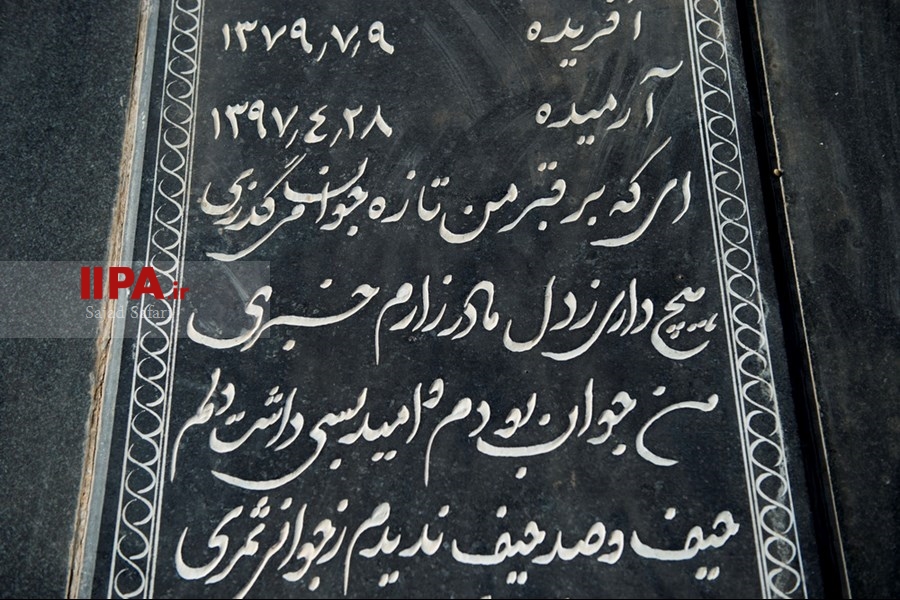 آفریده ۱۳۷۹٫۷٫۹
آرمیده ۱۳۹۷٫۴٫۲۸
ای که بر قبر من تازه جوان می گذری
هیچ داری ز دل مادر زارم خبری
من جوان بودم و امید بسی داشت دلم
حیف و صد حیف ندیدم ز جوانی ثمری
IIPA.ir
Sajad Safari